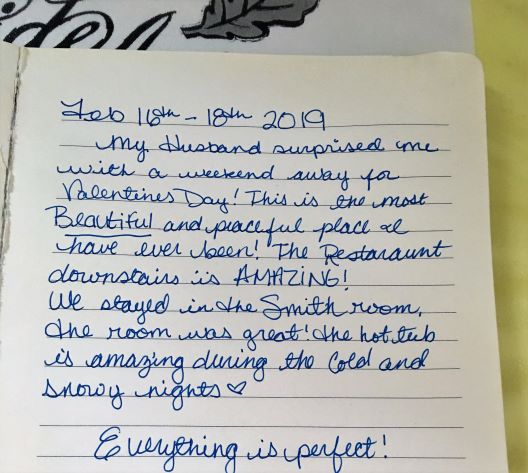 Feb 16th - 18th 2019
My Husband surprised me
with a weekend away for
Valentines Day! This is the most
Beautiful and peaceful place I
have ever been! The Restaraunt
downstairs is AMAZING!
We stayed in the Smith room,
the room was great! the hot tub
is amazing during the Cold and
snowy nights ♡
Everything is perfect!